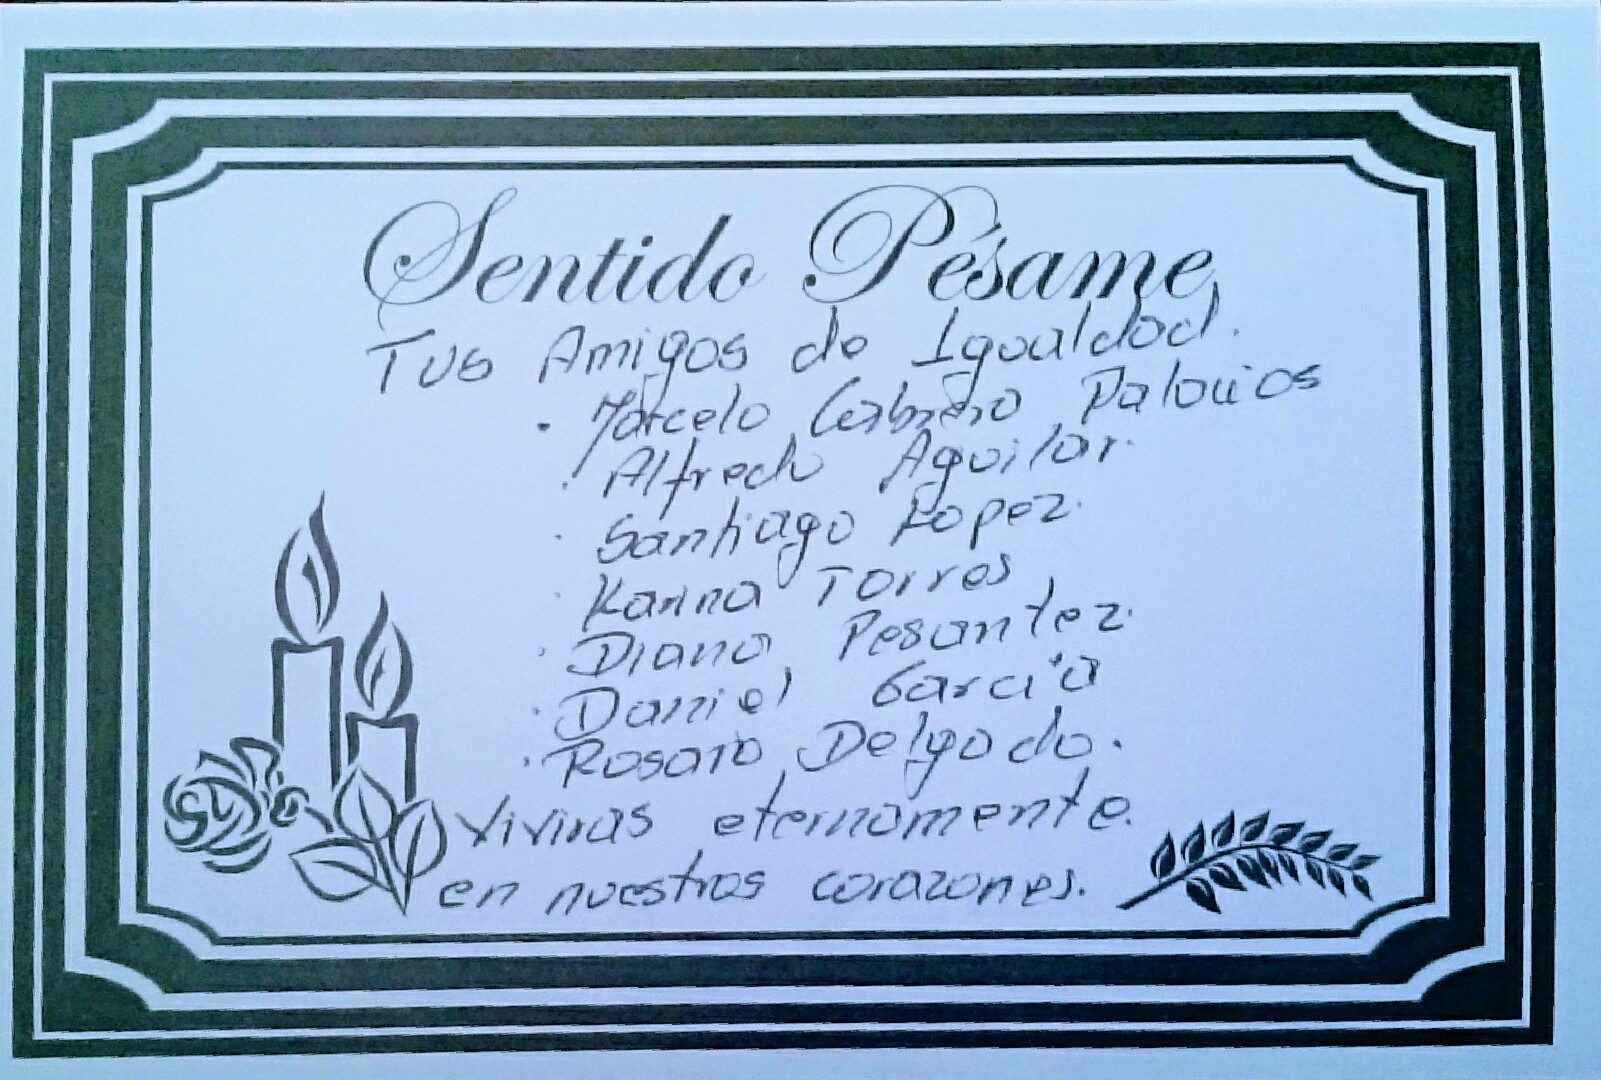 Sentido Pésame
Tus Amigos de Igualdad.
· Marcelo Cabrera Palacios
· Alfredo Aguilar.
· Santiago Lopez.
· Karina Torres
· Diana Pesantez.
· Daniel García
· Rosario Delgado.
Viviras eternamente.
en nuestros corazones.